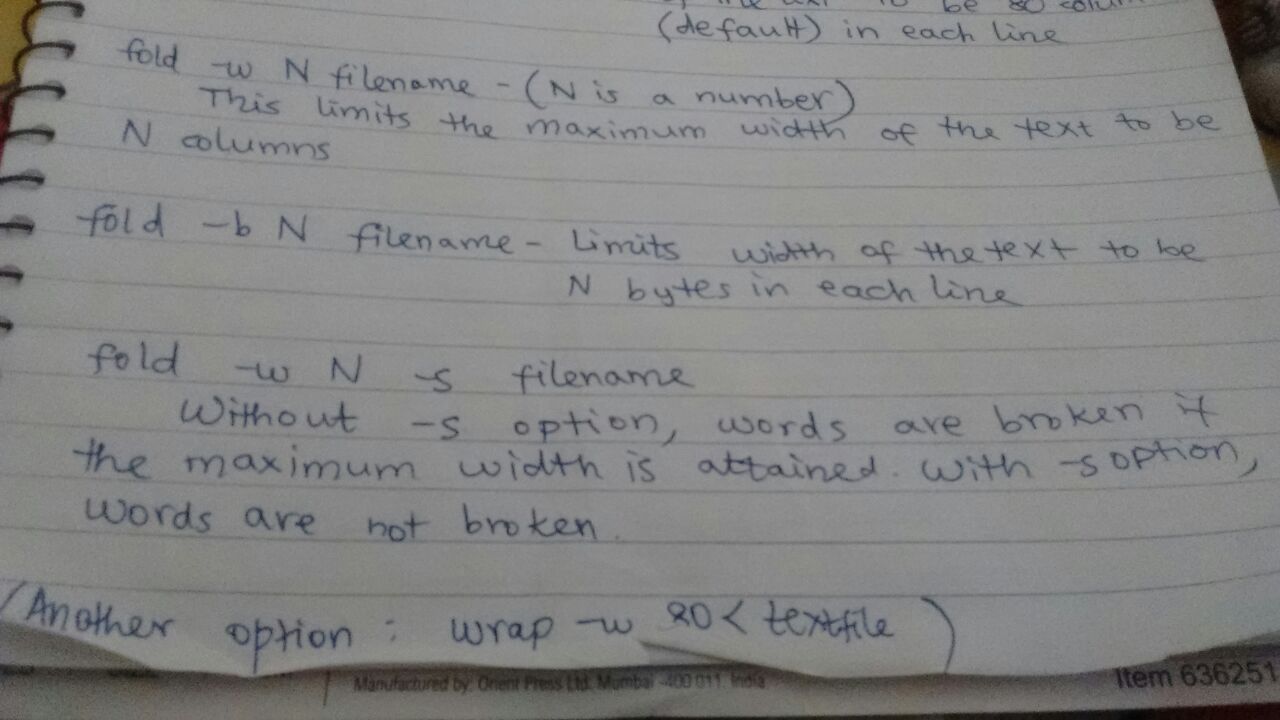 to be 80
(default) in each line
fold -w N filename - (N is a number)
This limits the maximum width of the text to be
N columns
fold -b N filename - Limits width of the text to be
N bytes in each line
fold -w N -s filename
Without -s option, words are broken if
the maximum width is attained. With -s option,
words are not broken.
(Another option : wrap -w 20 < textfile )
Manufactured by: Orient Press Ltd. Mumbai -400 011. India
Item 636251